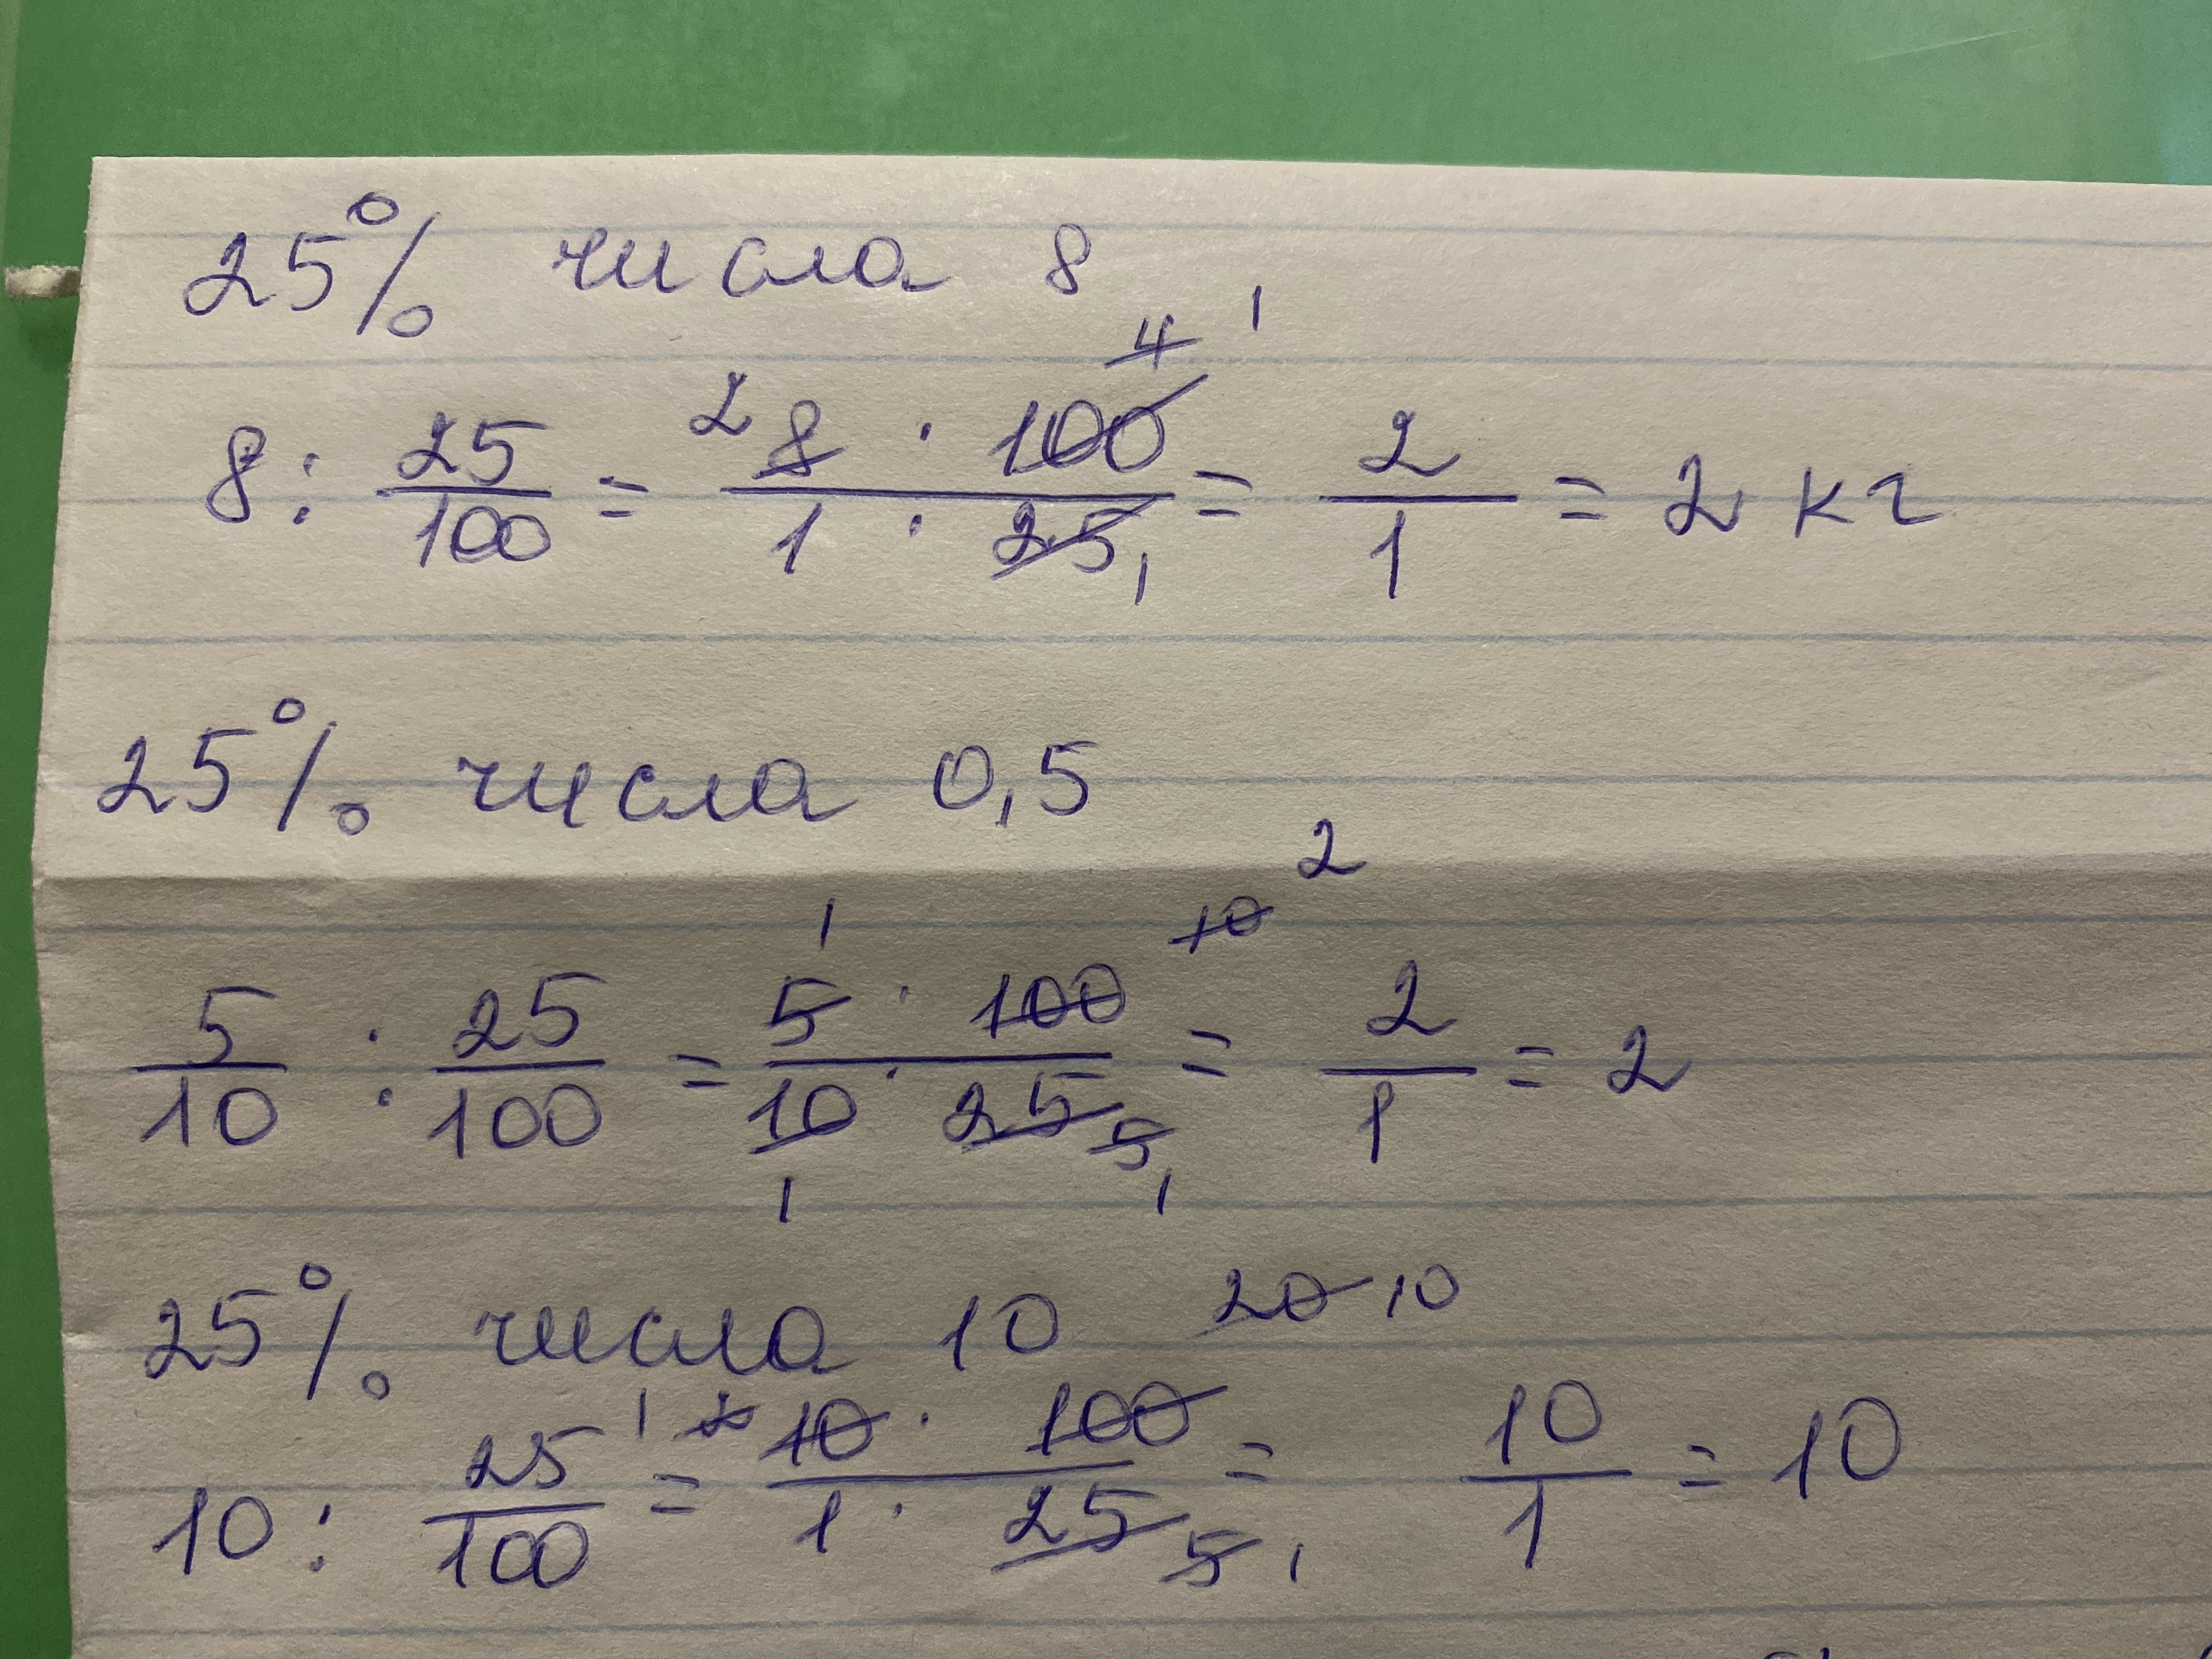 25% числа 8
8 : 25/100 = 2 8 · 100 4 1 / 1 · 25 1 = 2/1 = 2 кг
25% числа 0,5
5/10 : 25/100 = 1 5 · 100 10 2 / 10 1 · 25 5 1 = 2/1 = 2
25% числа 10
10 : 25/100 = 1 2 10 · 100 20 10 / 1 · 25 5 1 = 10/1 = 10